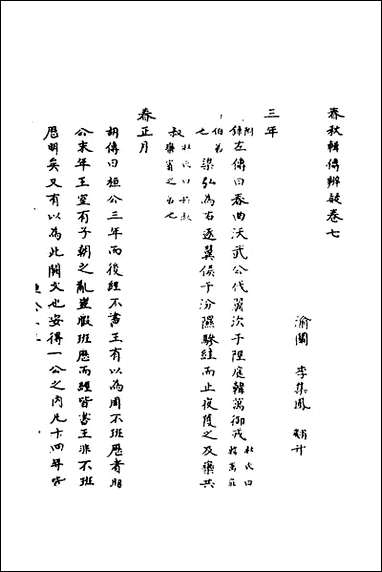 春秋輯傳辨疑卷七
渝關 李集鳳 翽升
三年
附錄左傳曰春曲沃武公伐翼次于陘庭韓萬御戎 杜氏曰韓萬莊
伯弟也 梁弘為右逐翼侯于汾隰驂絓而止夜獲之及欒共
叔 杜氏曰共叔欒賓之子也
春正月
胡傳曰桓公三年而後經不書王有以為周不班歷者昭
公末年王室有子朝之亂豈暇班歷而經皆書王非不班
歷明矣又有以為此闕文也安得一公之內凡十四年皆